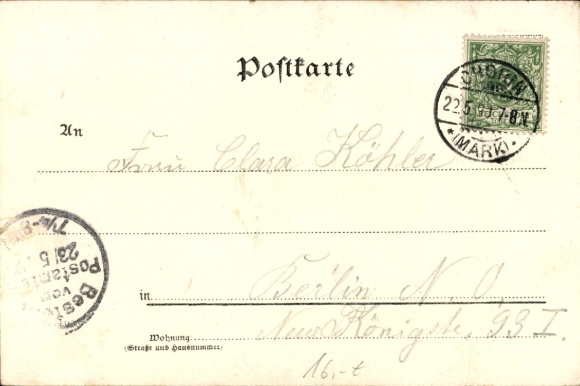 Postkarte
CHORIN
22.5.99.7-8N.
*(MARK)*
An
Frau Clara Köhler
7¼-8
23/5
Postamt
vom
Best
in Berlin N. O.
Wohnung
(Straße und Hausnummer)
Neue Königstr. 93 I.
16,-t